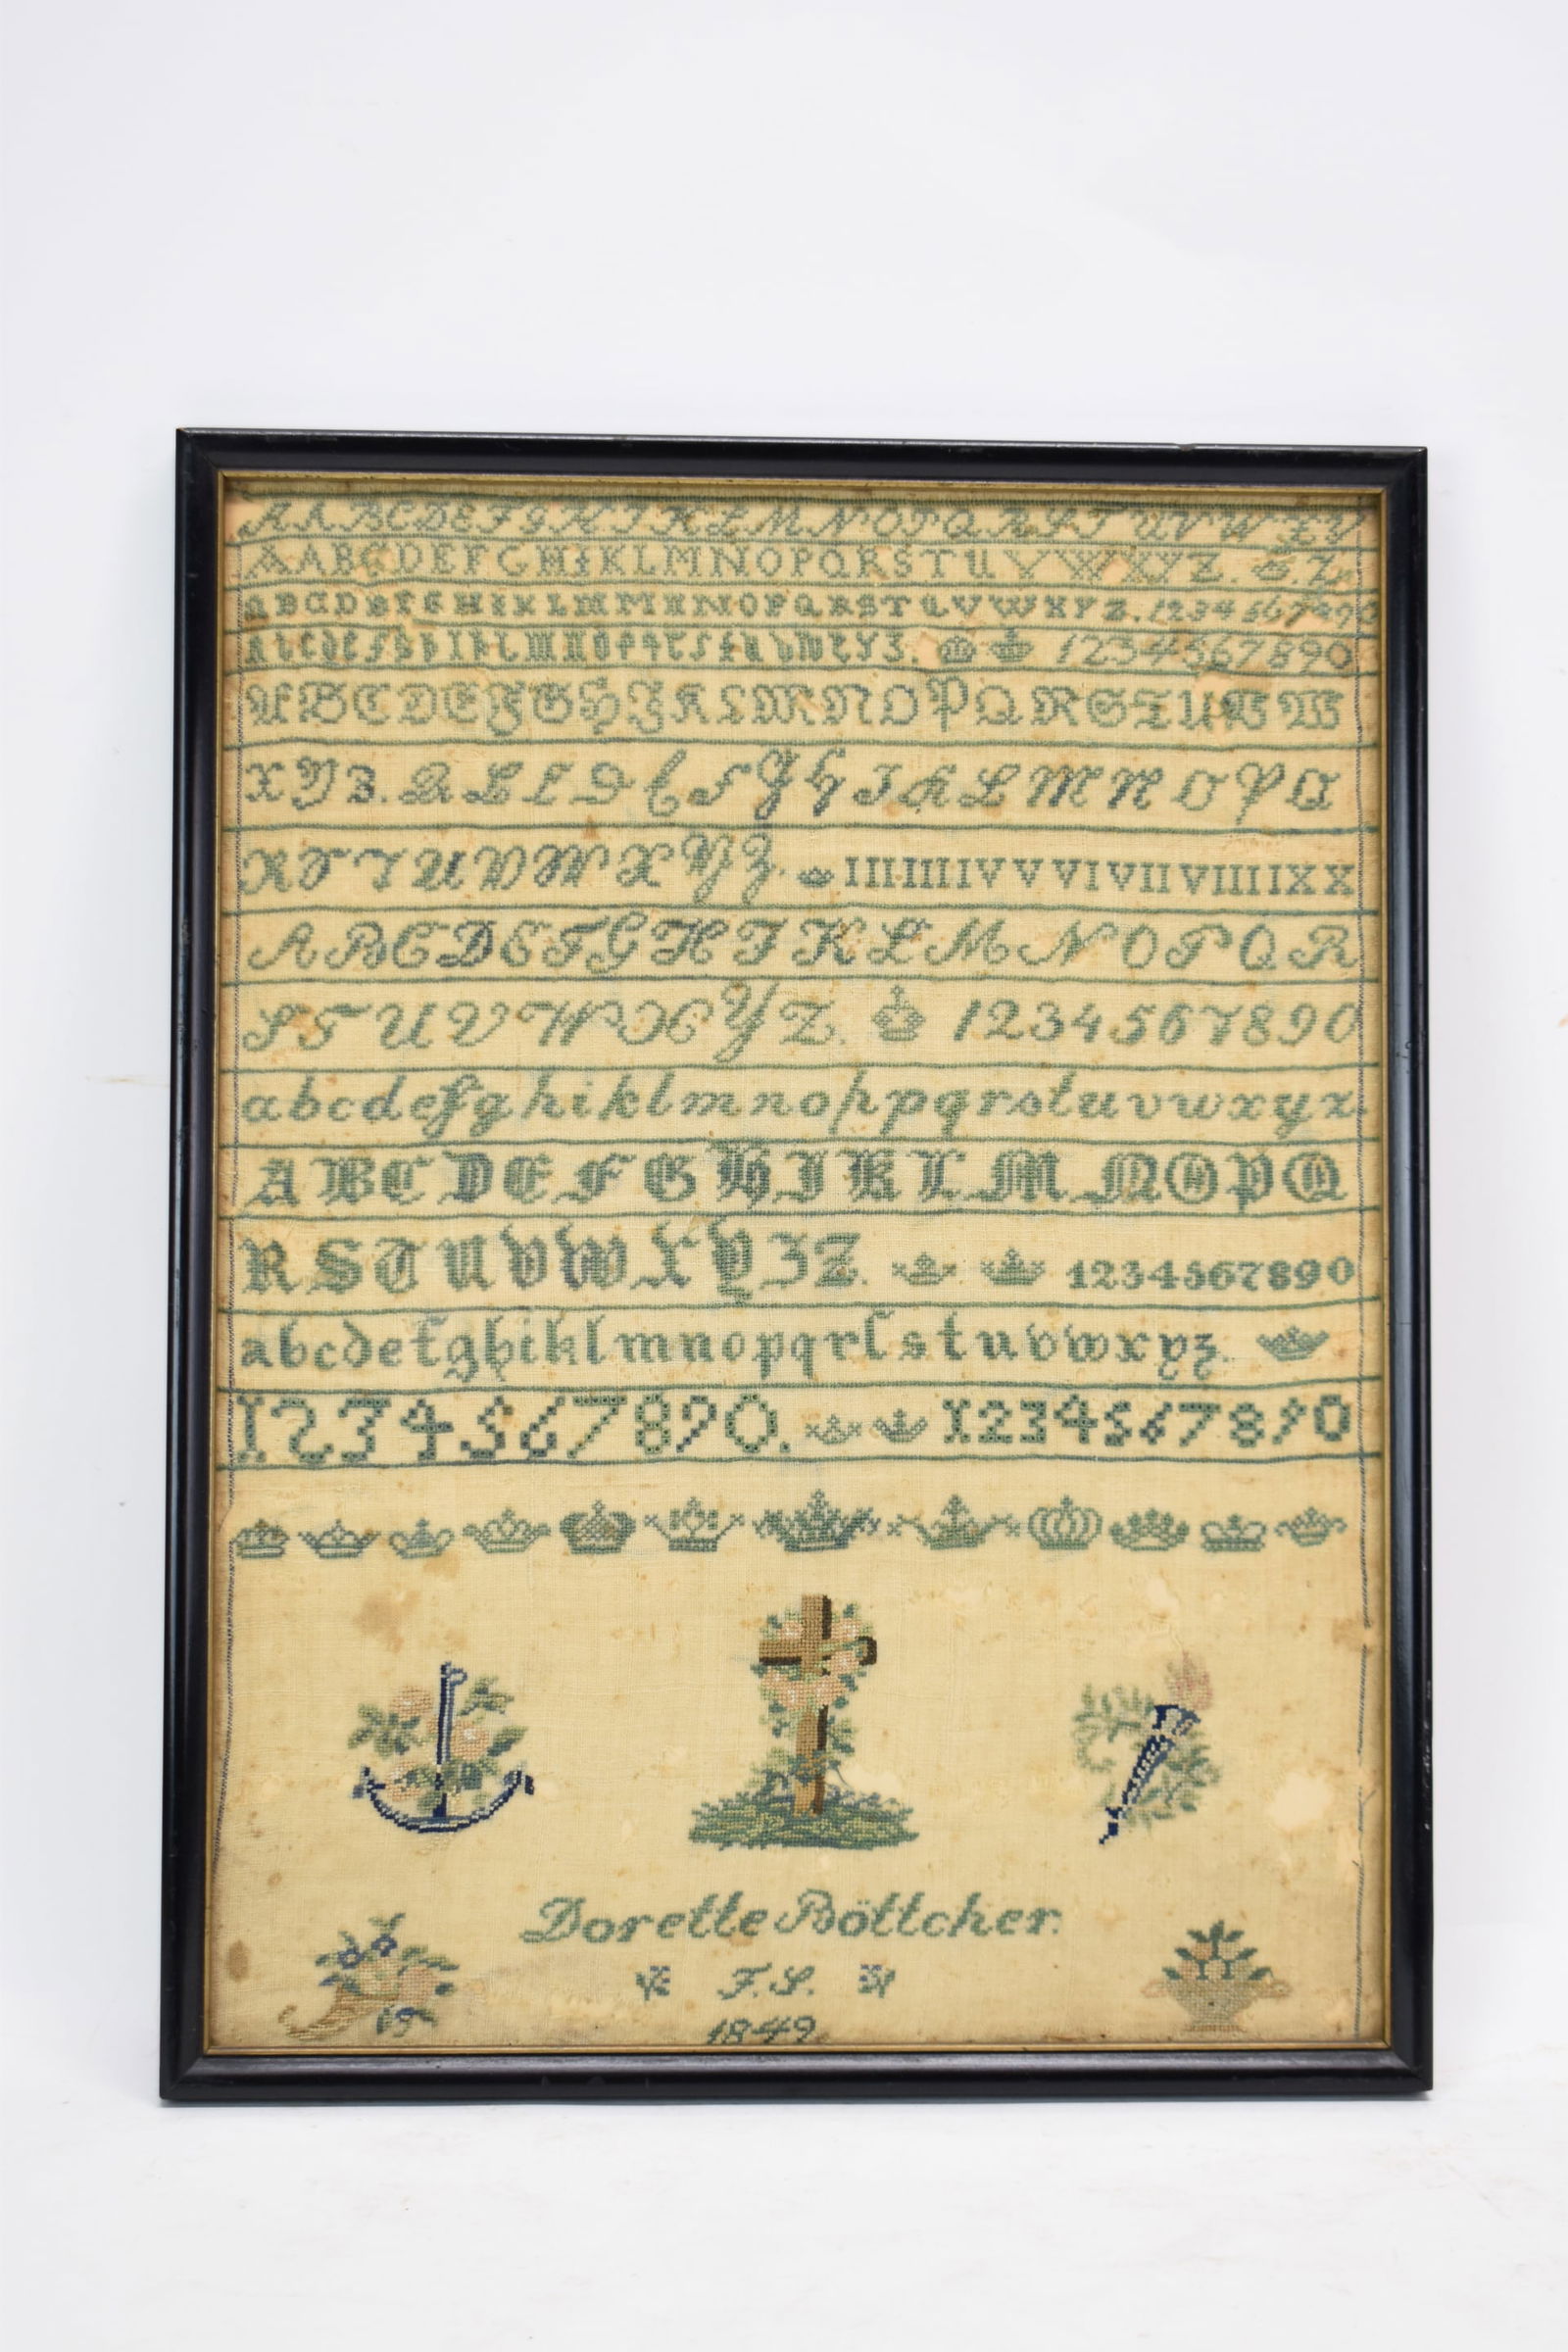 AABCDEFGHIKLMNOPQRSTUVWXY
AABCDEFGHIKLMNOPQRSTUVWXYZ. Z. Z.
ABCDEFGHIKLMMNNOPQRSTUVWXYZ. 1234567890
1234567890
ABCDEFGHIKLMNOPQRSTUVW
XYZ. ABCDEFGHIKLMNOPQ
RSTUVWXYZ. IIIIIIIVVVIVIIVIIIIXX
ABCDEFGHIKLMNOPQR
STUVWXYZ. 1234567890
abcdefghiklmnoppqrstuvwxyz.
ABCDEFGHIKLMNOPQ
RSTUVWXYZZ. 1234567890
abcdefghiklmnopqrſstuvwxyz.
1234567890. 1234567890
Dorette Böttcher.
F.S.
1849.